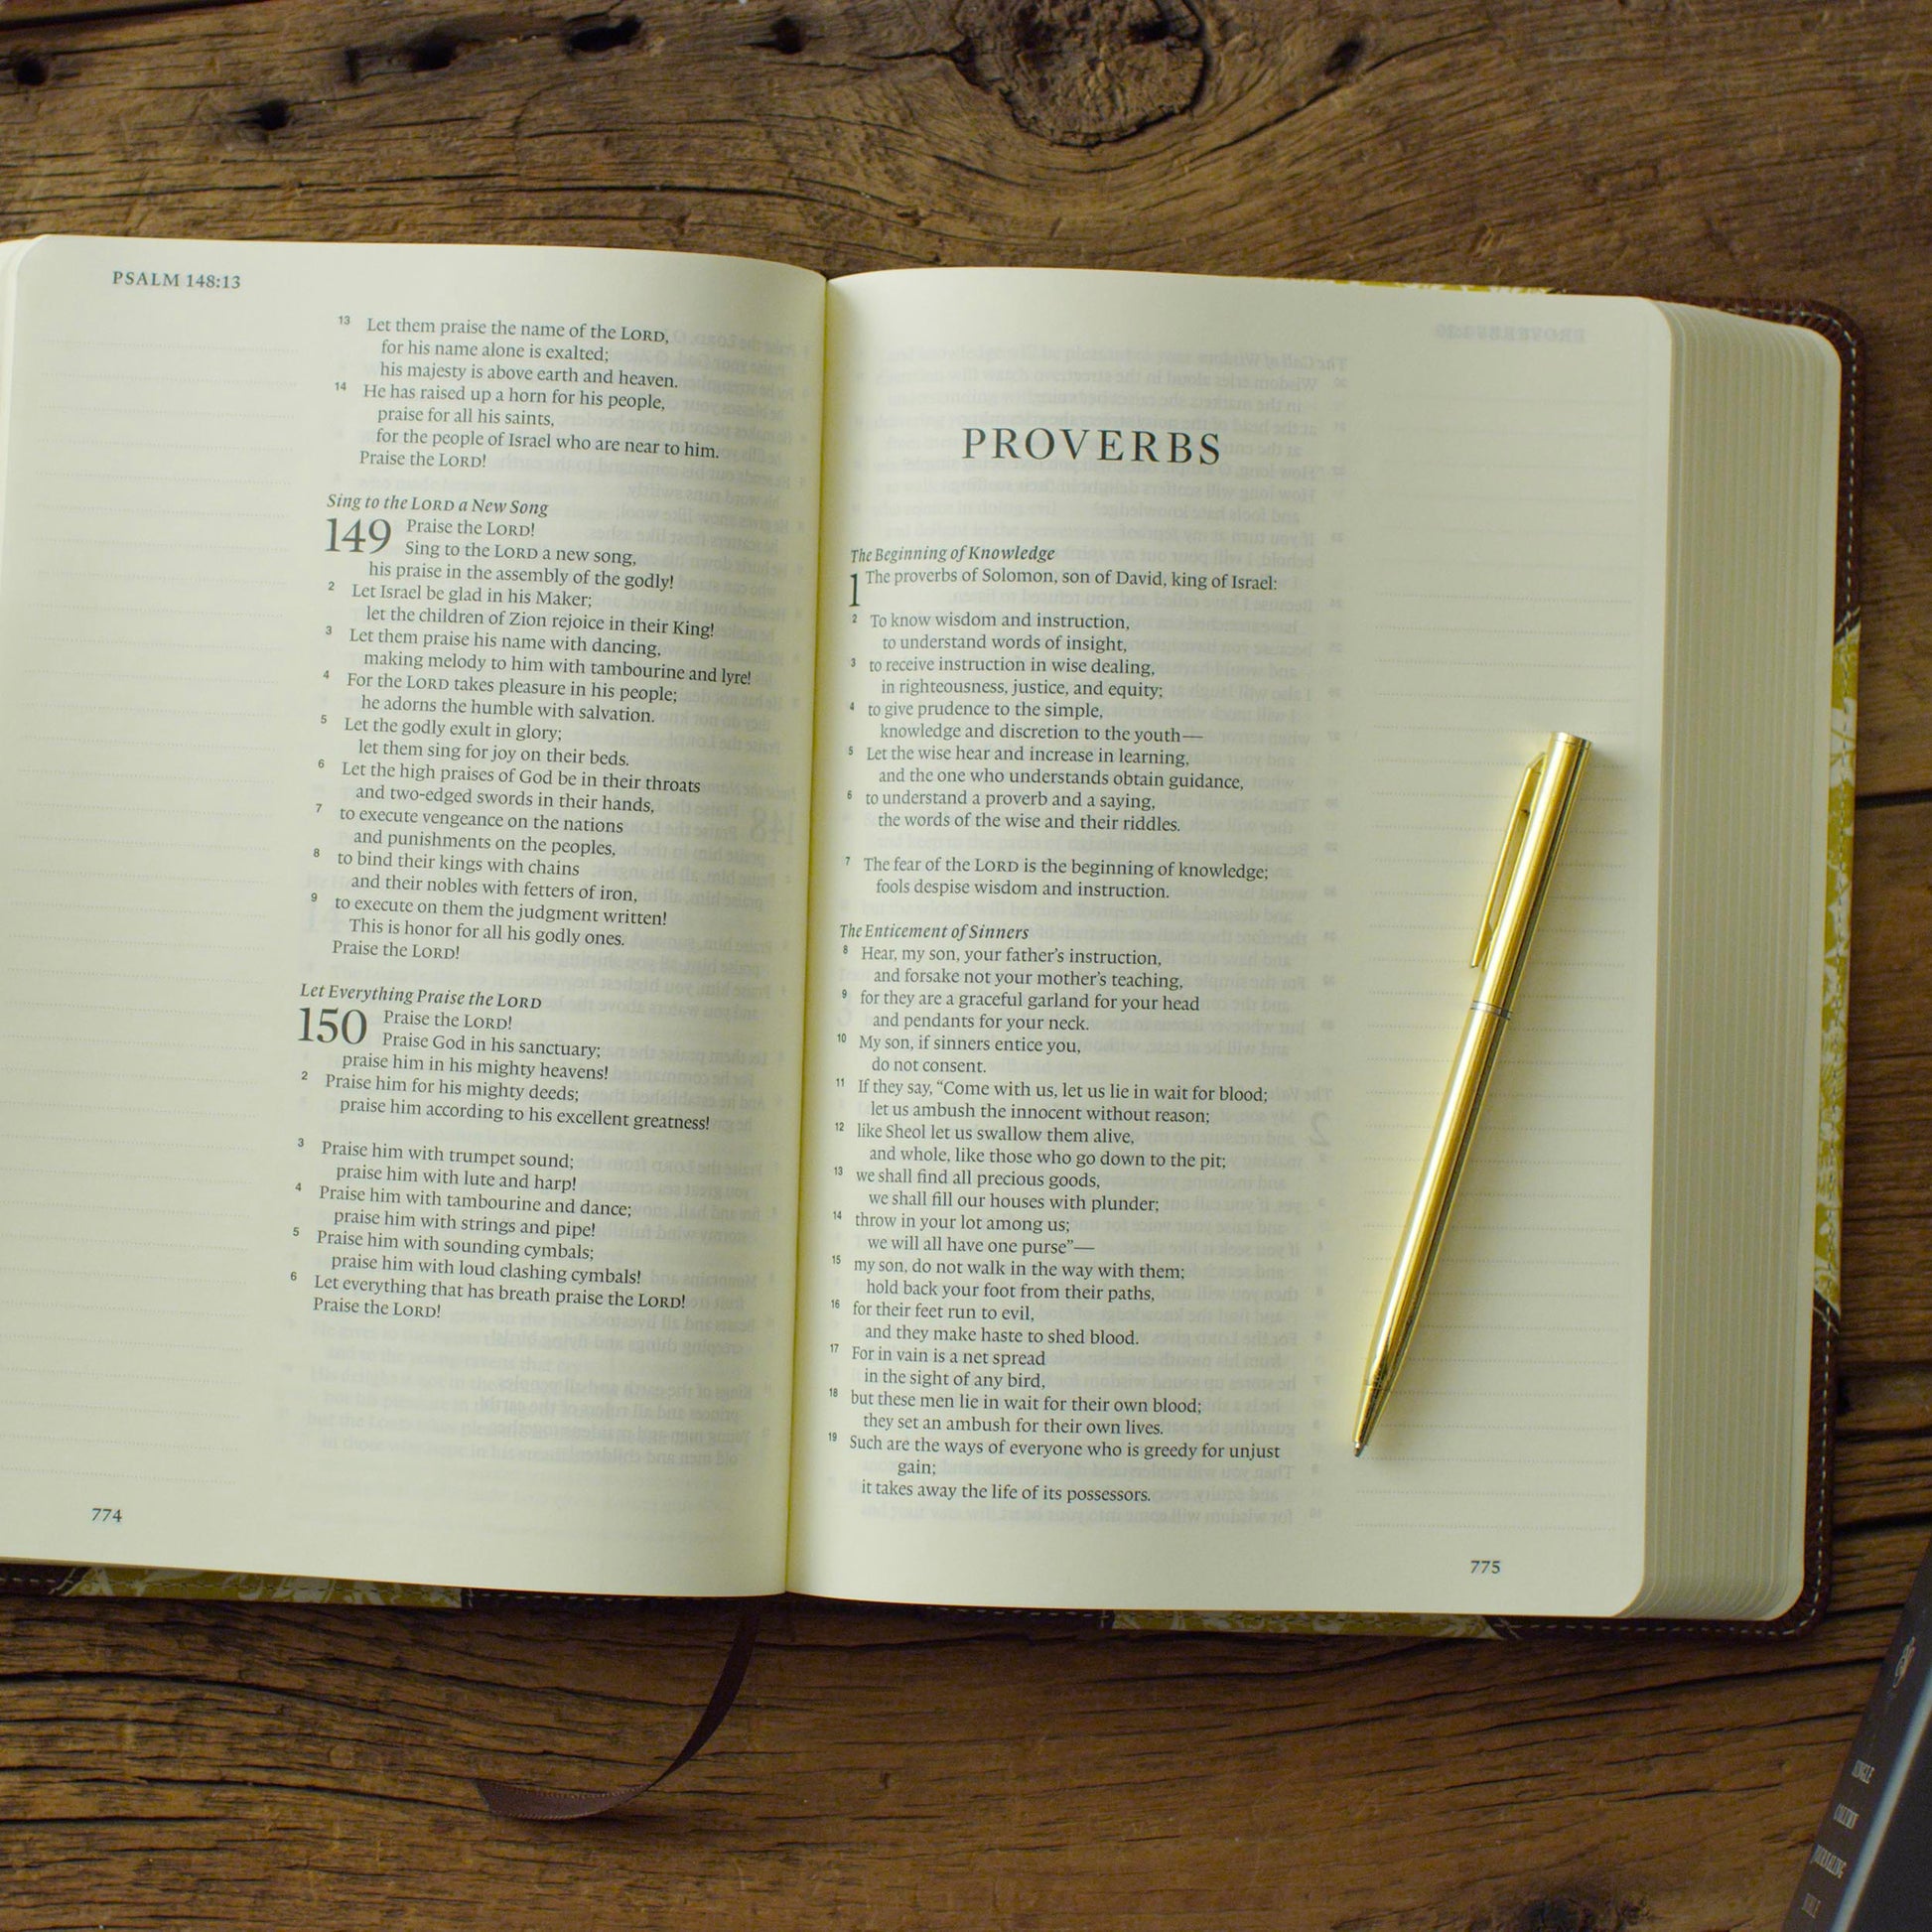 PSALM 148:13
13 Let them praise the name of the LORD,
for his name alone is exalted;
his majesty is above earth and heaven.
14 He has raised up a horn for his people,
praise for all his saints,
for the people of Israel who are near to him.
Praise the LORD!
Sing to the LORD a New Song
149 Praise the LORD!
Sing to the LORD a new song,
his praise in the assembly of the godly!
2 Let Israel be glad in his Maker;
let the children of Zion rejoice in their King!
3 Let them praise his name with dancing,
making melody to him with tambourine and lyre!
4 For the LORD takes pleasure in his people;
he adorns the humble with salvation.
5 Let the godly exult in glory;
let them sing for joy on their beds.
6 Let the high praises of God be in their throats
and two-edged swords in their hands,
7 to execute vengeance on the nations
and punishments on the peoples,
8 to bind their kings with chains
and their nobles with fetters of iron,
9 to execute on them the judgment written!
This is honor for all his godly ones.
Praise the LORD!
Let Everything Praise the LORD
150 Praise the LORD!
Praise God in his sanctuary;
praise him in his mighty heavens!
2 Praise him for his mighty deeds;
praise him according to his excellent greatness!
3 Praise him with trumpet sound;
praise him with lute and harp!
4 Praise him with tambourine and dance;
praise him with strings and pipe!
5 Praise him with sounding cymbals;
praise him with loud clashing cymbals!
6 Let everything that has breath praise the LORD!
Praise the LORD!
774
PROVERBS
The Beginning of Knowledge
1 The proverbs of Solomon, son of David, king of Israel:
2 To know wisdom and instruction,
to understand words of insight,
3 to receive instruction in wise dealing,
in righteousness, justice, and equity;
4 to give prudence to the simple,
knowledge and discretion to the youth—
5 Let the wise hear and increase in learning,
and the one who understands obtain guidance,
6 to understand a proverb and a saying,
the words of the wise and their riddles.
7 The fear of the LORD is the beginning of knowledge;
fools despise wisdom and instruction.
The Enticement of Sinners
8 Hear, my son, your father's instruction,
and forsake not your mother's teaching,
9 for they are a graceful garland for your head
and pendants for your neck.
10 My son, if sinners entice you,
do not consent.
11 If they say, “Come with us, let us lie in wait for blood;
let us ambush the innocent without reason;
12 like Sheol let us swallow them alive,
and whole, like those who go down to the pit;
13 we shall find all precious goods,
we shall fill our houses with plunder;
14 throw in your lot among us;
we will all have one purse”—
15 my son, do not walk in the way with them;
hold back your foot from their paths,
16 for their feet run to evil,
and they make haste to shed blood.
17 For in vain is a net spread
in the sight of any bird,
18 but these men lie in wait for their own blood;
they set an ambush for their own lives.
19 Such are the ways of everyone who is greedy for unjust
gain;
it takes away the life of its possessors.
775
SINGLE
COLUMN
JOURNALING
BIBLE